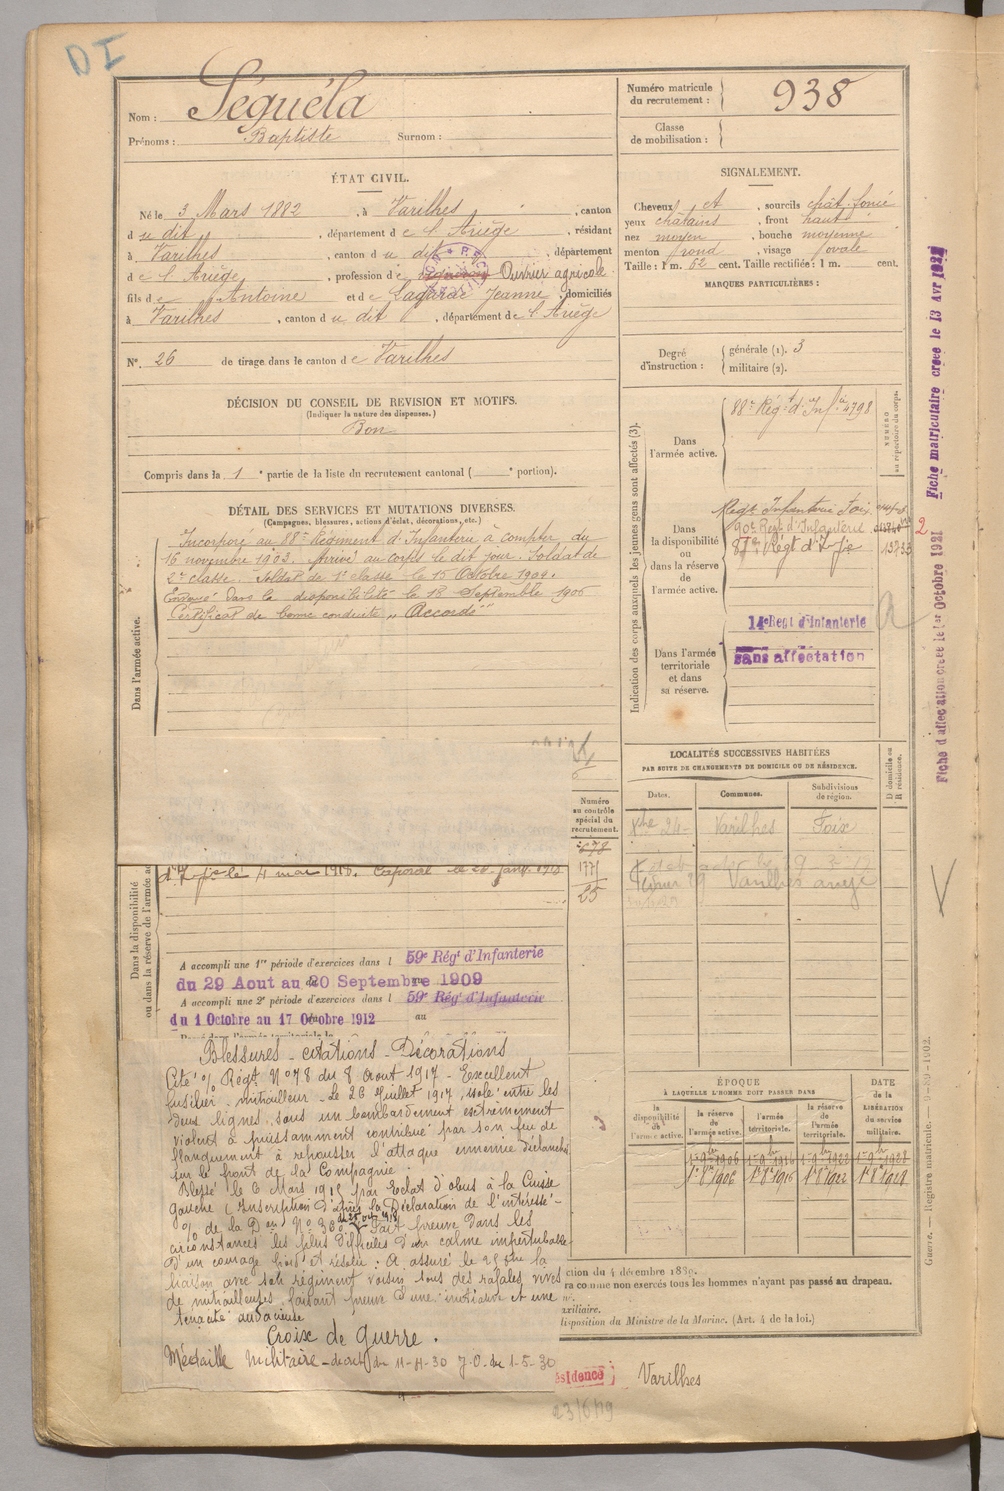 DI
Nom : Séguéla
Prénoms : Baptiste Surnom :
ÉTAT CIVIL.
Né le 3 Mars 1882, à Varilhes, canton
du dit, département de l'Ariège, résidant
à Varilhes, canton du dit, département
de l'Ariège, profession de Ouvrier agricole
fils de Antoine et de Lagarde Jeanne, domiciliés
à Varilhes, canton du dit, département de l'Ariège
N° 26 de tirage dans le canton de Varilhes
DÉCISION DU CONSEIL DE REVISION ET MOTIFS.
(Indiquer la nature des dispenses.)
Bon
Compris dans la 1e partie de la liste du recrutement cantonal ( e portion).
DÉTAIL DES SERVICES ET MUTATIONS DIVERSES.
(Campagnes, blessures, actions d'éclat, décorations, etc.)
Dans l'armée active.
Incorporé au 88e Régiment d'Infanterie à compter du
16 novembre 1903. Arrivé au corps le dit jour. Soldat de
2e classe. Soldat de 1e classe le 15 Octobre 1904.
Envoyé dans la disponibilité le 18 Septembre 1906
Certificat de bonne conduite "Accordé"
Numéro
au contrôle
spécial du
recrutement.
1771
25
Dans la disponibilité
ou dans la réserve de l'armée ac
d'Infie le 4 mai 1916. Caporal le 20 janv. 1918
A accompli une 1re période d'exercices dans l 59e Régt d'Infanterie
du 29 Aout au 20 Septembre 1909
A accompli une 2e période d'exercices dans l 59e Régt d'Infanterie
du 1 Octobre au 17 Octobre 1912 au
Blessures - citations - Décorations
Cité % Régt N° 78 du 8 Aout 1917 - Excellent
fusilier mitrailleur - Le 26 Juillet 1917 isolé entre les
deux lignes, sous un bombardement extrêmement
violent a puissamment contribué par son feu de
flanquement à repousser l'attaque ennemie déclanchée
sur le front de la Compagnie.
Blessé le 6 Mars 1915 par Eclat d'obus à la Cuisse
gauche (Inscription d'après la Déclaration de l'intéressé -
% de la Don N° Fait preuve dans les
circonstances les plus difficiles d'un calme imperturbable
d'un courage froid et résolu : A assuré le la
liaison avec son régiment voisin sous des rafales vives
de mitrailleuses faisant preuve d'une initiative et une
tenacité audacieuse
Croix de Guerre.
Médaille Militaire - décret du J.O. du 1-5-30
Numéro matricule
du recrutement : 938
Classe
de mobilisation :
SIGNALEMENT.
Cheveux et, sourcils chât. foncé
yeux châtains, front haut
nez moyen, bouche moyenne
menton rond, visage ovale
Taille : 1 m. 62 cent. Taille rectifiée : 1 m. cent.
MARQUES PARTICULIÈRES :
Degré
d'instruction :
générale (1). 3
militaire (2).
Indication des corps auxquels les jeunes gens sont affectés (3).
NUMÉRO
au répertoire du corps.
Dans
l'armée active.
88e Régt d'Infie 4798
Dans
la disponibilité
ou
dans la réserve
de
l'armée active.
Régt Infanterie Foix
90e Regt d'Infanterie
Régt d'Infie
2
Dans l'armée
territoriale
et dans
sa réserve.
14e Regt d'Infanterie
sans affectation
LOCALITÉS SUCCESSIVES HABITÉES
PAR SUITE DE CHANGEMENTS DE DOMICILE OU DE RÉSIDENCE.
D domicile ou
R résidence.
Dates. Communes. Subdivisions
de région.
Varilhes Foix
Varilhes
ÉPOQUE
À LAQUELLE L'HOMME DOIT PASSER DANS
la
disponibilité
de
l'armée active.
la réserve
de
l'armée active.
l'armée
territoriale.
la réserve
de
l'armée
territoriale.
DATE
de la
LIBÉRATION
du service
militaire.
ction du 4 décembre 1889.
ra comme non exercés tous les hommes n'ayant pas passé au drapeau.
uxiliaire.
lisposition du Ministre de la Marine. (Art. 4 de la loi.)
ésidence Varilhes
23/6/19
Fiche matriculaire créée le 13 Avr
Fiche d'affectation créée le 1er Octobre 1921
Guerre. — Registre matricule. — 9-89-1902.